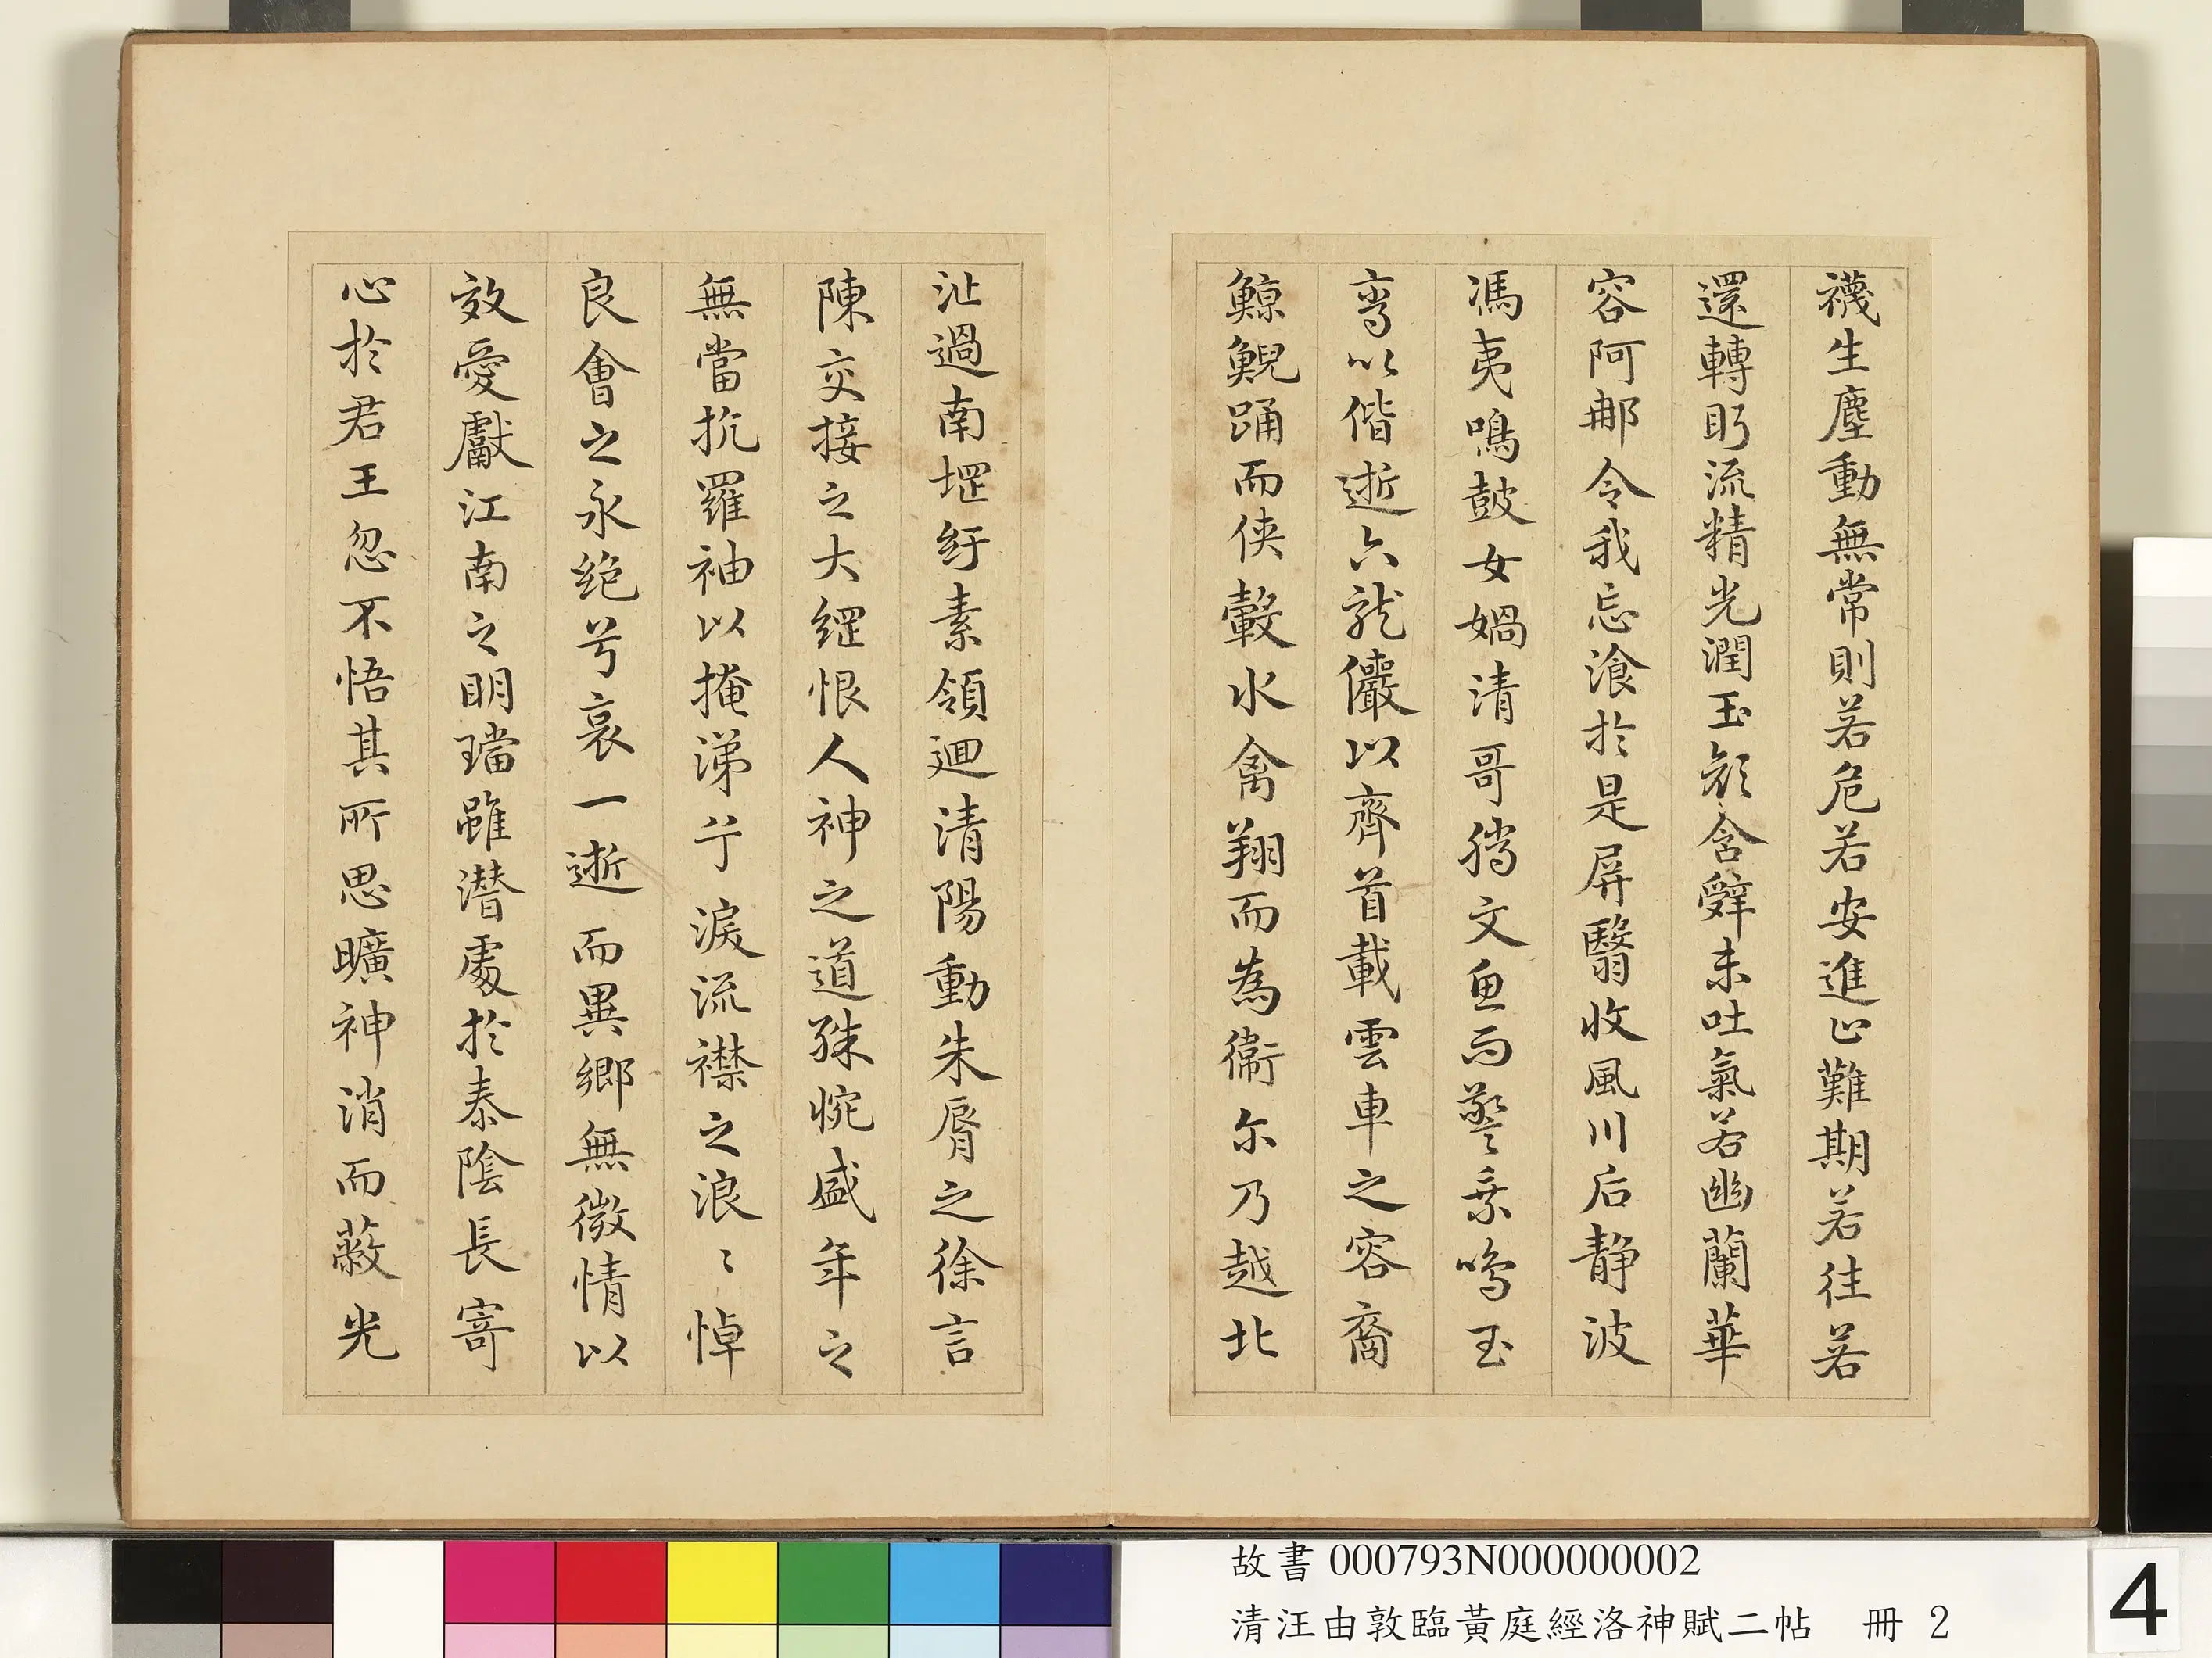 襪生塵動無常則若危若安進止難期若往若
還轉眄流精光潤玉顏含辭未吐氣若幽蘭華
容阿那令我忘飡於是屏翳收風川后静波
馮夷鳴鼓女媧清哥騰文魚而警乘鳴玉
鸞以偕逝六龍儼以齊首載雲車之容裔
鯨鯢踊而俠轂水禽翔而為衞尔乃越北
沚過南堽紆素領迴清陽動朱脣之徐言
陳交接之大綱恨人神之道殊怨盛年之
無當抗羅袖以掩涕兮淚流襟之浪〻悼
良會之永絕兮哀一逝而異鄉無微情以
效愛獻江南之明璫雖潛處於泰陰長寄
心於君王忽不悟其所思曠神消而蔽光
故書 000793N000000002
清汪由敦臨黃庭經洛神賦二帖 冊 2
4